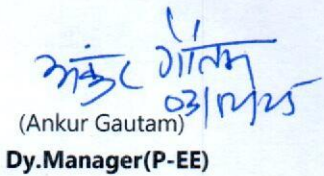 अंकुर गौतम
03/12/25
(Ankur Gautam)
Dy.Manager(P-EE)